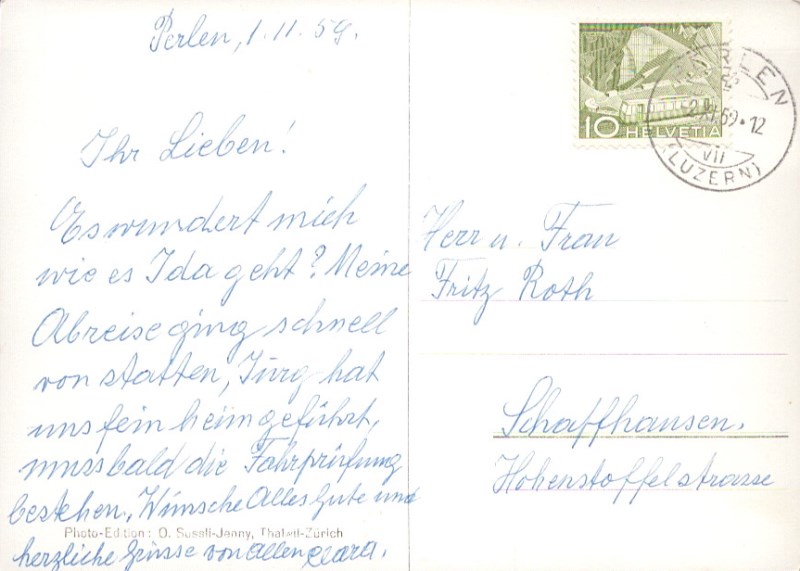 Perlen, 1.11.59.
Ihr Lieben!
Es wundert mich
wie es Ida geht? Meine
Abreise ging schnell
von statten, Jürg hat
uns fein heimgeführt,
muss bald die Fahrprüfung
bestehen. Wünsche Alles Gute und
Photo-Edition: O. Susali-Jenny, Thalwil-Zürich
herzliche Grüsse von allen Clara.
10 HELVETIA
PERLEN
-2.XI.59.12
VII
(LUZERN)
Herr u. Frau
Fritz Roth
Schaffhausen.
Hohenstoffelstrasse